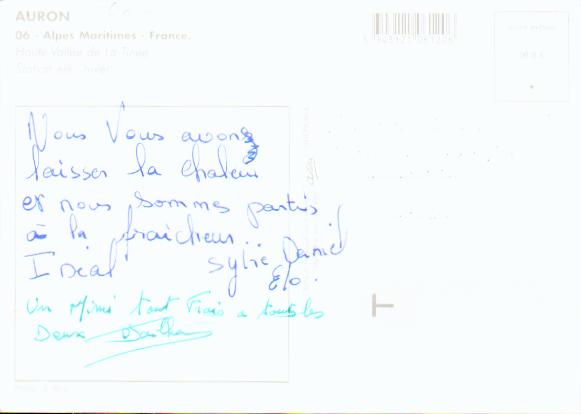 AURON
06 - Alpes Maritimes - France.
Haute Vallée de La Tinée
Station été - hiver
Nous Vous avons
laisser la chaleur
et nous sommes partis
à la fraicheur..
Ideal Sylvie Daniel
Elo.
Un Mimi tout Frais a touts les
Deux